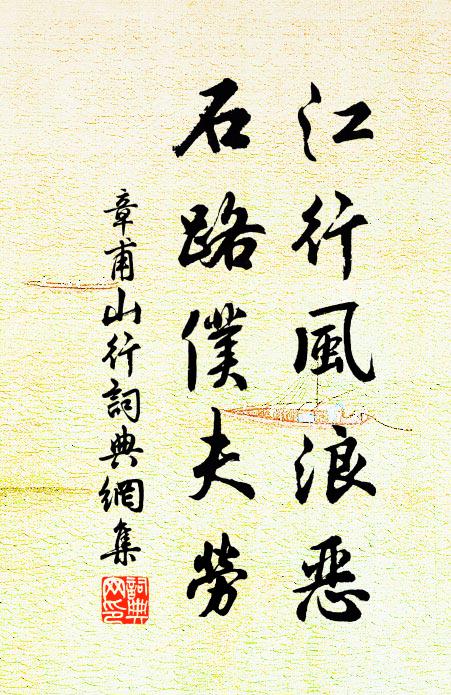 江行風浪惡
石路僕夫勞
章甫山行詞典網集
詞典
网印